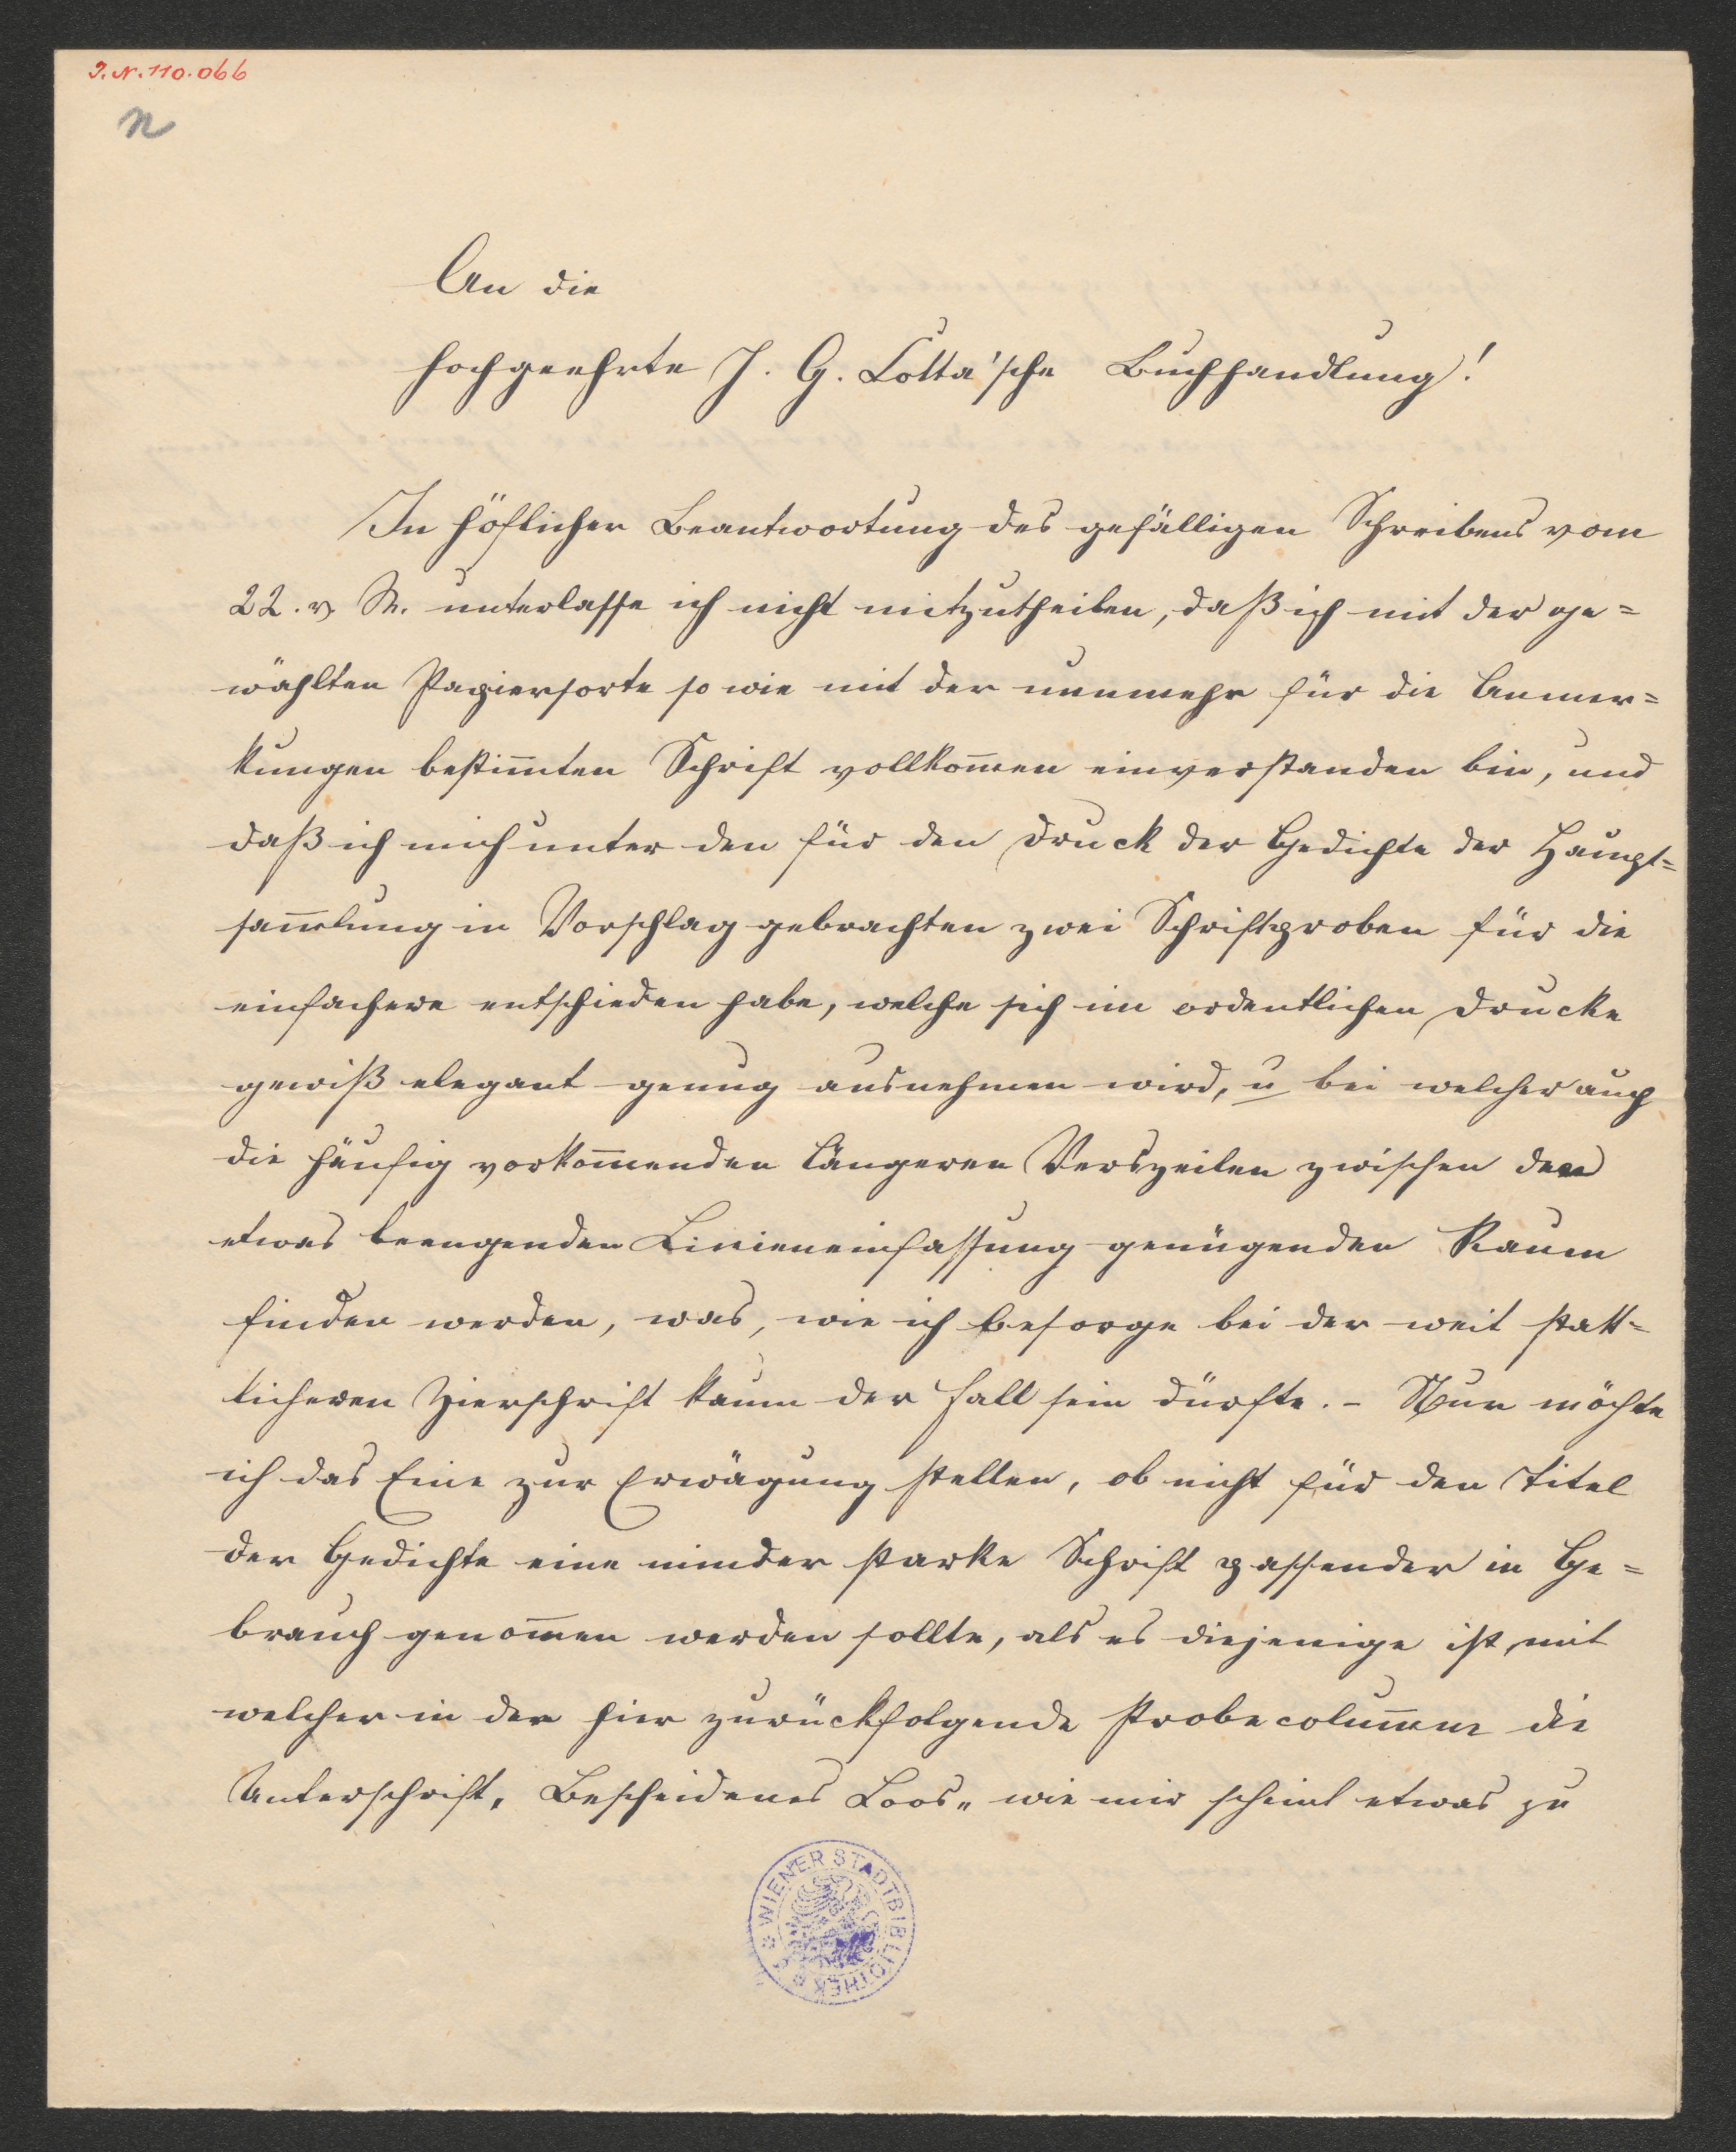 I.N.110.066
n
An die
hochgeehrte J. G. Cotta'sche Buchhandlung!
In höflicher Beantwortung des gefälligen Schreibens vom
22. v. M. unterlasse ich nicht mitzutheilen, daß ich mit der ge=
wählten Papiersorte so wie mit der nunmehr für die Anmer=
kungen bestim̄ten Schrift vollkom̄en einverstanden bin, und
daß ich mich unter den für den Druck der Gedichte der Haupt=
sam̄lung in Vorschlag gebrachten zwei Schriftproben für die
einfachere entschieden habe, welche sich im ordentlichen Drucke
gewiß elegant genug ausnehmen wird, u bei welcher auch
die häufig vorkom̄enden längeren Verszeilen zwischen der
etwas beengenden Linieneinfassung genügenden Raum
finden werden, was, wie ich besorge bei der weit statt=
licheren Zierschrift kaum der Fall sein dürfte. – Nur möchte
ich das Eine zur Erwägung stellen, ob nicht für den Titel
der Gedichte eine minder starke Schrift passender in Ge=
brauch genom̄en werden sollte, als es diejenige ist, mit
welcher in der hier zurückfolgende Probecolum̄ne die
Unterschrift „Bescheidenes Loos„ wie mir scheint etwas zu
WIENER STADTBIBLIOTHEK